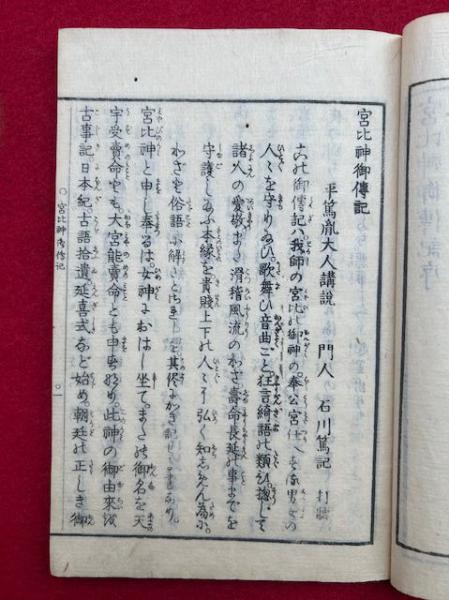 宮比神御傳記
平篤胤大人講説 門人 石川篤記
此の御傳記ハ我師の宮比の御神の奉公宮仕へする男女の
人々を守りたまひ、歌舞ひ音曲ごと、狂言綺語の類ひ、摠じて
諸人の愛敬まき滑稽風流のわざ、壽命長延の事までを
守護したまふ本縁を、貴賤上下の人々に弘く知しめん為に、
わざと俗語に解さとされしを、其侭にかき記せるなり。
宮比神と申し奉るは、女神におはし坐て、またの御名を天
宇受賣命とも、大宮能賣命とも申
此神の御由来は
古事記日本紀古語拾遺延喜式など始め、朝廷の正しき御
宮比神御傳記
一